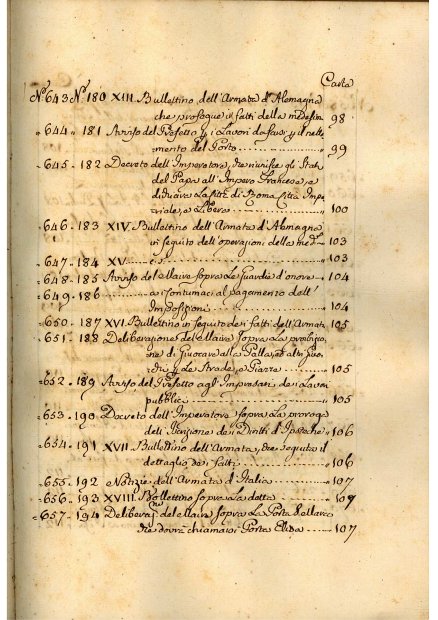 Carta
N.º 643 N.º 180 XIII Bullettino dell'Armata d'Alemagna
che prosegue i fatti della medesima 98
" 644 " 181 Avviso del Prefetto p i Lavori da farsi p il nett-
tamento del Porto 99
" 645 " 182 Decreto dell'Imperatore, che riunisce gli Stati
del Papa all'Impero Francese, e
dichiara La Città di Roma Città Impe-
riale, e Libera 100
" 646 " 183 XIV Bullettino dell'Armata d'Alemagna
in seguito dell'operazioni della med.ª 103
" 647 " 184 XV 103
" 648 " 185 Avviso del Maire sopra Le Guardie d'onore 104
" 649 " 186 ai Contumaci al pagamento dell'
Imposizioni 104
" 650 " 187 XVI Bullettino in seguito dei fatti dell'Armata 105
" 651 " 188 Deliberazione del Maire sopra La proibizio-
ne di Giuocare alla Palla, ed altri Giuo-
chi p Le Strade, e Piazze 105
" 652 " 189 Avviso del Prefetto agl'Impresari dei Lavori
pubblici 105
" 653 " 190 Decreto dell'Imperatore sopra La proroga
dell'Iscrizione dei Diritti d'Ipoteche 106
" 654 " 191 XVII Bullettino dell'Armata, che seguita il
dettaglio dei fatti 106
" 655 " 192 Notizie dell'Armata d'Italia 107
" 656 " 193 XVIII Bollettino sopra La detta 107
" 657 " 194 Deliberaz.ne del Maire sopra La Porta S. Marco
che dovrà chiamarsi Porta Elisa 107